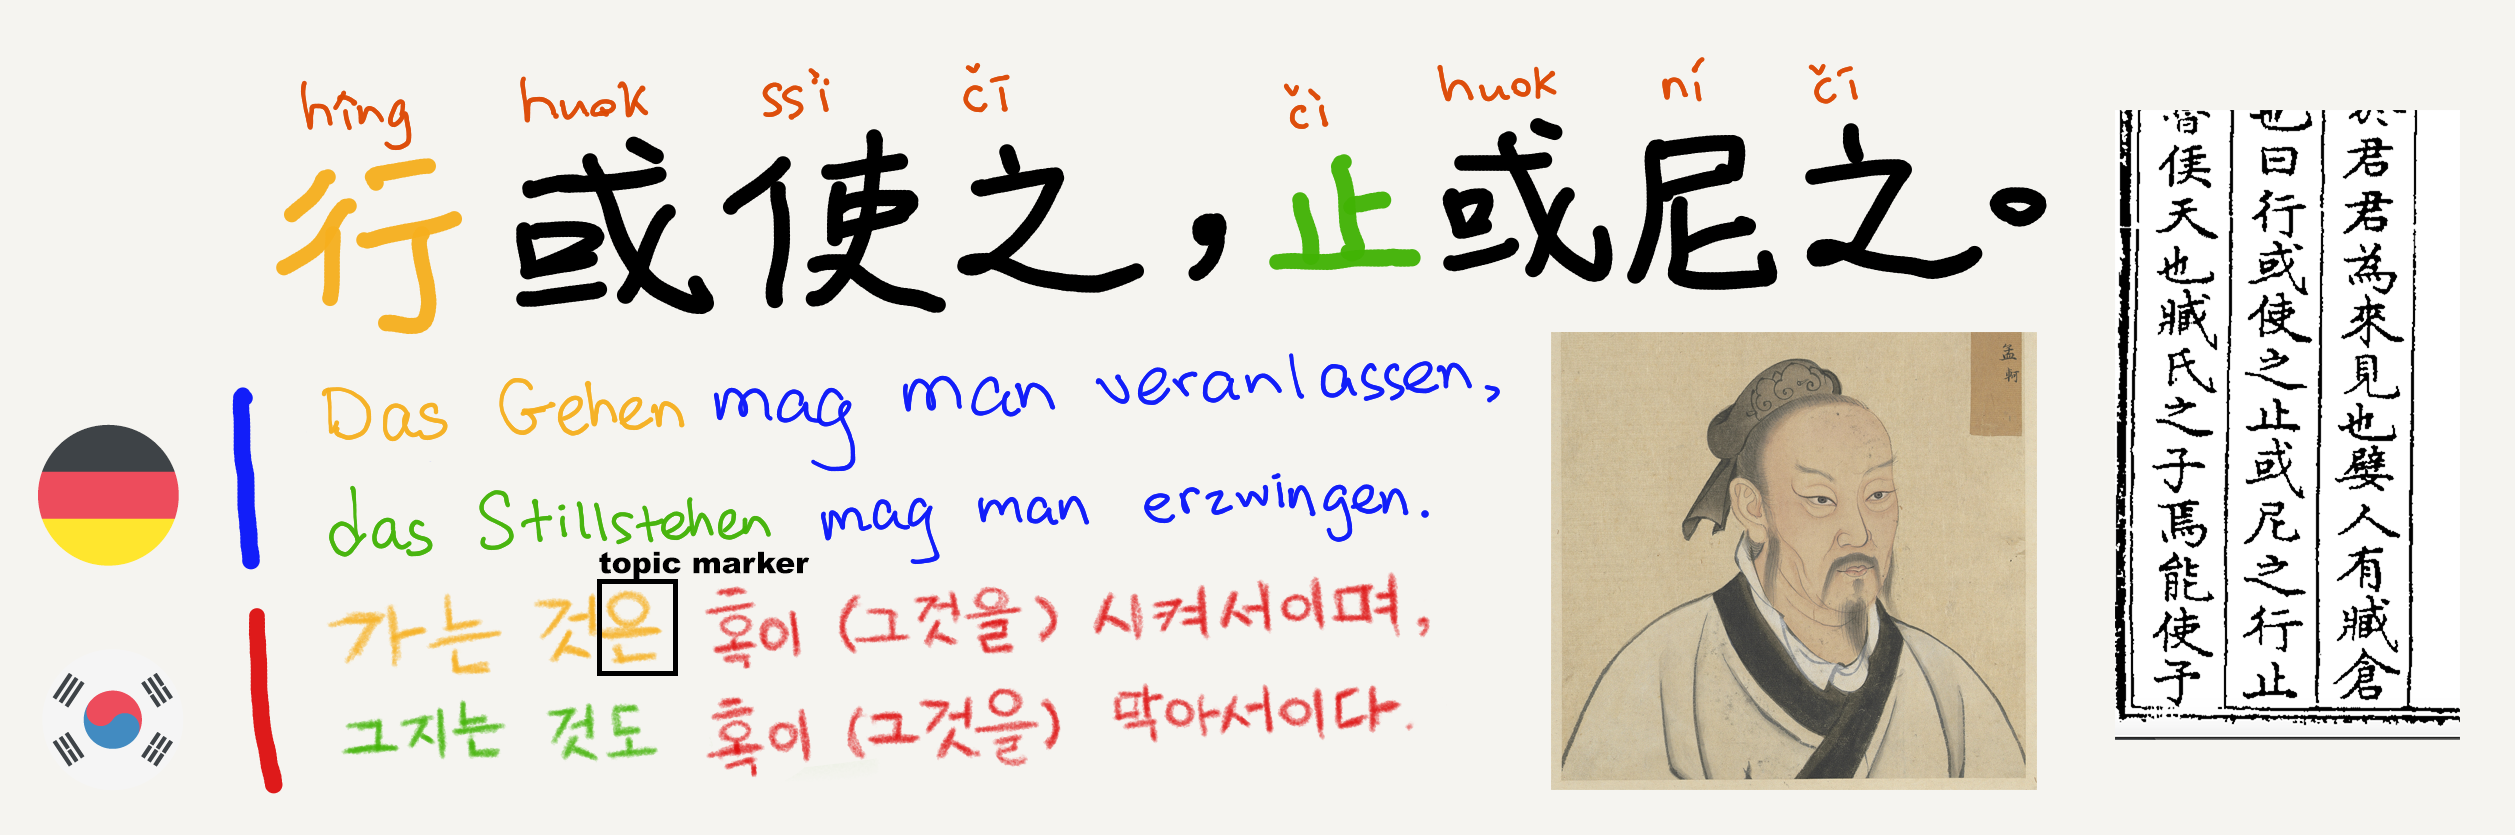 hîng huok ssï̀ čī čì huok ní čī
行或使之，止或尼之。
Das Gehen mag man veranlassen,
das Stillstehen mag man erzwingen.
topic marker
가는 것은 혹이 (그것을) 시켜서이며,
그지는 것도 혹이 (그것을) 막아서이다.
孟軻
於君君為來見也嬖人有臧倉
也曰行或使之止或尼之行止
魯侯天也臧氏之子焉能使予